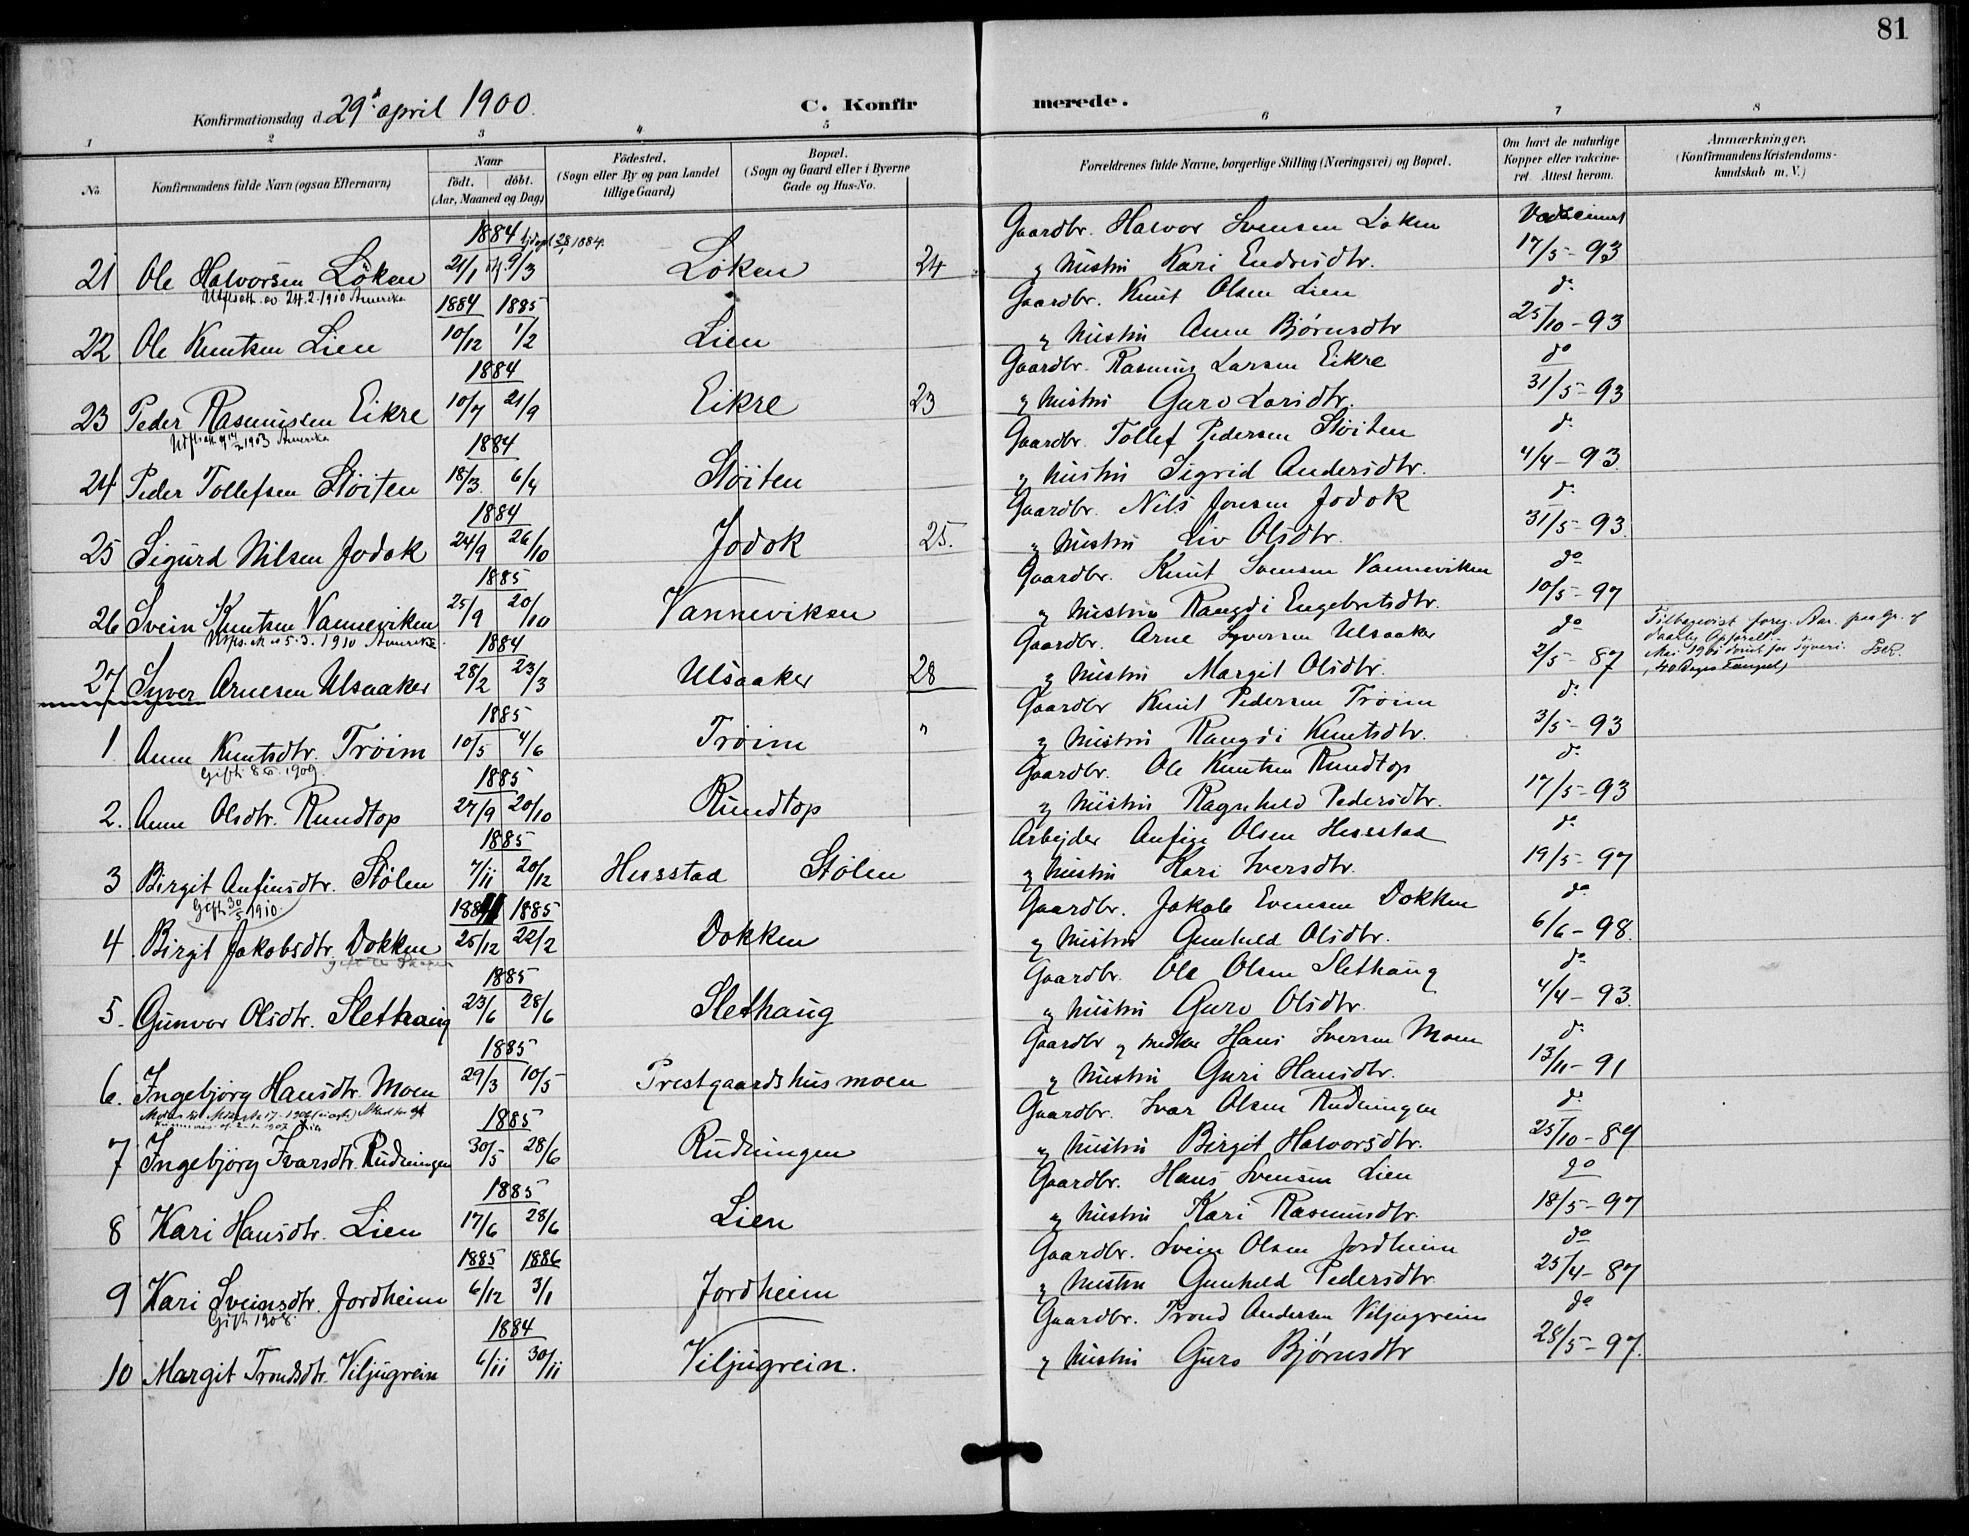 81
Konfirmationsdag d. 29de april 1900.
C. Konfirmerede.
1 2 3 4 5 6 7 8
No.
Konfirmandens fulde Navn (ogsaa Efternavn)
Naar
födt. döbt.
(Aar, Maaned og Dag)
Födested.
(Sogn eller By og paa Landet
tillige Gaard)
Bopæl.
(Sogn og Gaard eller i Byerne
Gade og Hus-No.
Forældrenes fulde Navne, borgerlige Stilling (Næringsvei) og Bopæl.
Om havt de naturlige
Kopper eller vaccine-
ret. Attest herom.
Anmærkninger.
(Konfirmandens Kristendoms-
kundskab m. V.)
1884 1884.
Gaardbr. Halvor Svensen Løken Vaccineret
21 Ole Halvorsen Løken 21/1 9/3 Løken 24 og Hustru Kari Endresdtr. 17/5-93
Utfl.att. av 24.2.1910 Amerika
1884 1885 Gaardbr. Knut Olsen Lien do
22 Ole Knutsen Lien 10/12 1/2 Lien og Hustru Anne Bjørnsdtr 25/10-93
1884 Gaardbr. Rasmus Larsen Eikre do
23 Peder Rasmussen Eikre 10/7 21/9 Eikre 23 og Hustru Guro Larsdtr. 31/5-93
1903 Amerika
1884 Gaardbr. Tollef Pedersen Støiten do
24 Peder Tollefsen Støiten 18/3 6/4 Støiten og Hustru Sigrid Andersdtr. 4/4-93
1884 Gaardbr. Nils Jonsen Jodok do
25 Sigurd Nilsen Jodok 24/9 26/10 Jodok 25. og Hustru Liv Olsdtr. 31/5-93.
1885 Gaardbr. Knut Svensen Vanneviken do
26 Svein Knutsen Vanneviken 25/9 20/10 Vanneviken og Hustru Rangdi Engebretsdtr. 10/5-97
Utfl.att. 5.3.1910 Amerika.
1884 Gaardbr. Arne Syversen Ulsaaker do
Tilbagevist foreg. Aar. paa gr. af
daarlig Opførsel.
Mai 1901 dømt for Tyveri.
(40 Dages Fængsel)
27 Syver Arnesen Ulsaaker 28/2 23/3 Ulsaaker 28 og Hustru Margit Olsdtr. 2/5-87
1885 Gaardbr Knut Pedersen Trøim do
1 Anne Knutsdtr. Trøim 10/5 4/6 Trøim " og Hustru Rangdi Knutsdtr. 3/5-93
Gift 1909.
1885 Gaardbr. Ole Knutsen Rundtop do
2. Anne Olsdtr. Rundtop 27/9 20/10 Rundtop og Hustru Ragnhild Pedersdtr. 17/5-93
1885 Arbejder Anfinn Olsen Hesstad do
3 Birgit Anfinsdtr. Stølen 7/11 20/12 Hesstad Stølen og Hustru Kari Iversdtr. 19/5-97
Gift 30/5 1910.
1884 1885 Gaardbr. Jakob Evensen Dokken do
4 Birgit Jakobsdtr. Dokken 25/12 22/2 Dokken og Hustru Gunhild Olsdtr. 6/6-98.
1885 Gaardbr. Ole Olsen Slethaug do
5. Gunvor Olsdtr. Slethaug 23/6 28/6 Slethaug og Hustru Guro Olsdtr. 4/4-93.
1885 Gaardbr og Hans Iversen Moen do
6. Ingebjörg Hansdtr. Moen 29/3 10/5 Prestgaardshusmoen og Hustru Guri Hansdtr. 13/11-91
1885 Gaardbr. Ivar Olsen Rudningen do
7 Ingebjörg Ivarsdtr. Rudningen 30/5 28/6 Rudningen og Hustru Birgit Halvorsdtr. 25/10-89
1885 Gaardbr. Hans Svensen Lien do
8 Kari Hansdtr. Lien 17/6 28/6 Lien og Hustru Kari Rasmusdtr. 18/5-97
1885 1886 Gaardbr. Svein Olsen Jordheim do
9 Kari Sveinsdtr. Jordheim 6/12 3/1 Jordheim og Hustru Gunhild Pedersdtr. 25/4-87
Gift 1908.
1884 Gaardbr. Trond Andersen Viljugrein do
10 Margit Trondsdtr. Viljugrein 6/11 30/11 Viljugrein. og Hustru Guro Bjørnsdtr 28/5-97.